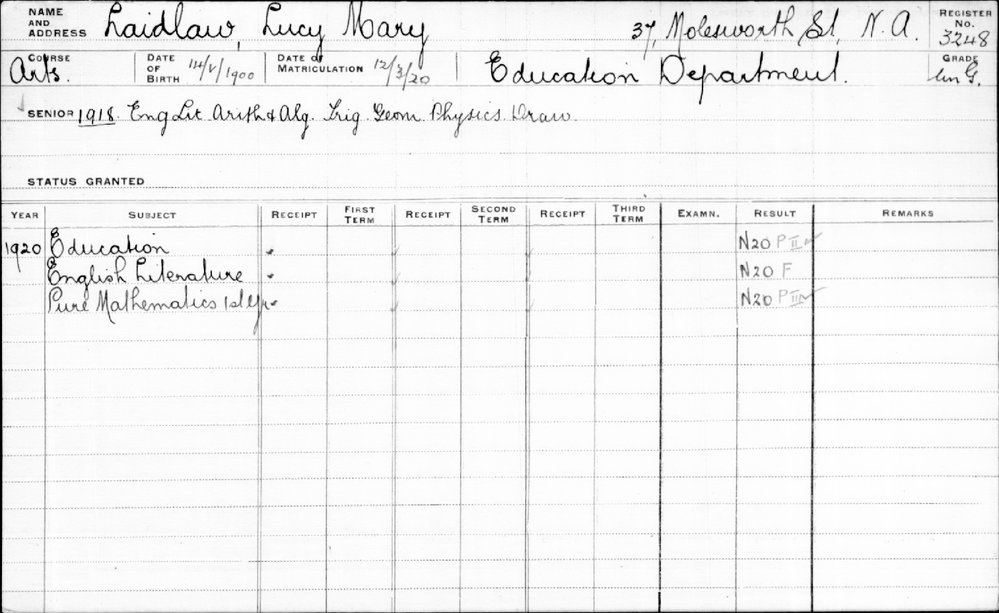 NAME AND ADDRESS Laidlaw, Lucy Mary 37, Molesworth St, N. A. REGISTER No. 3248
COURSE Arts. DATE OF BIRTH 1900 DATE OF MATRICULATION 12/3/20 Education Department. GRADE UnG.
SENIOR 1918. Eng Lit Arith & Alg. Trig. Geom. Physics. Draw.
STATUS GRANTED
YEAR SUBJECT RECEIPT FIRST TERM RECEIPT SECOND TERM RECEIPT THIRD TERM EXAMN. RESULT REMARKS
1920 Education N20 P II
English Literature N20 F
Pure Mathematics 1st Yr N20 P III